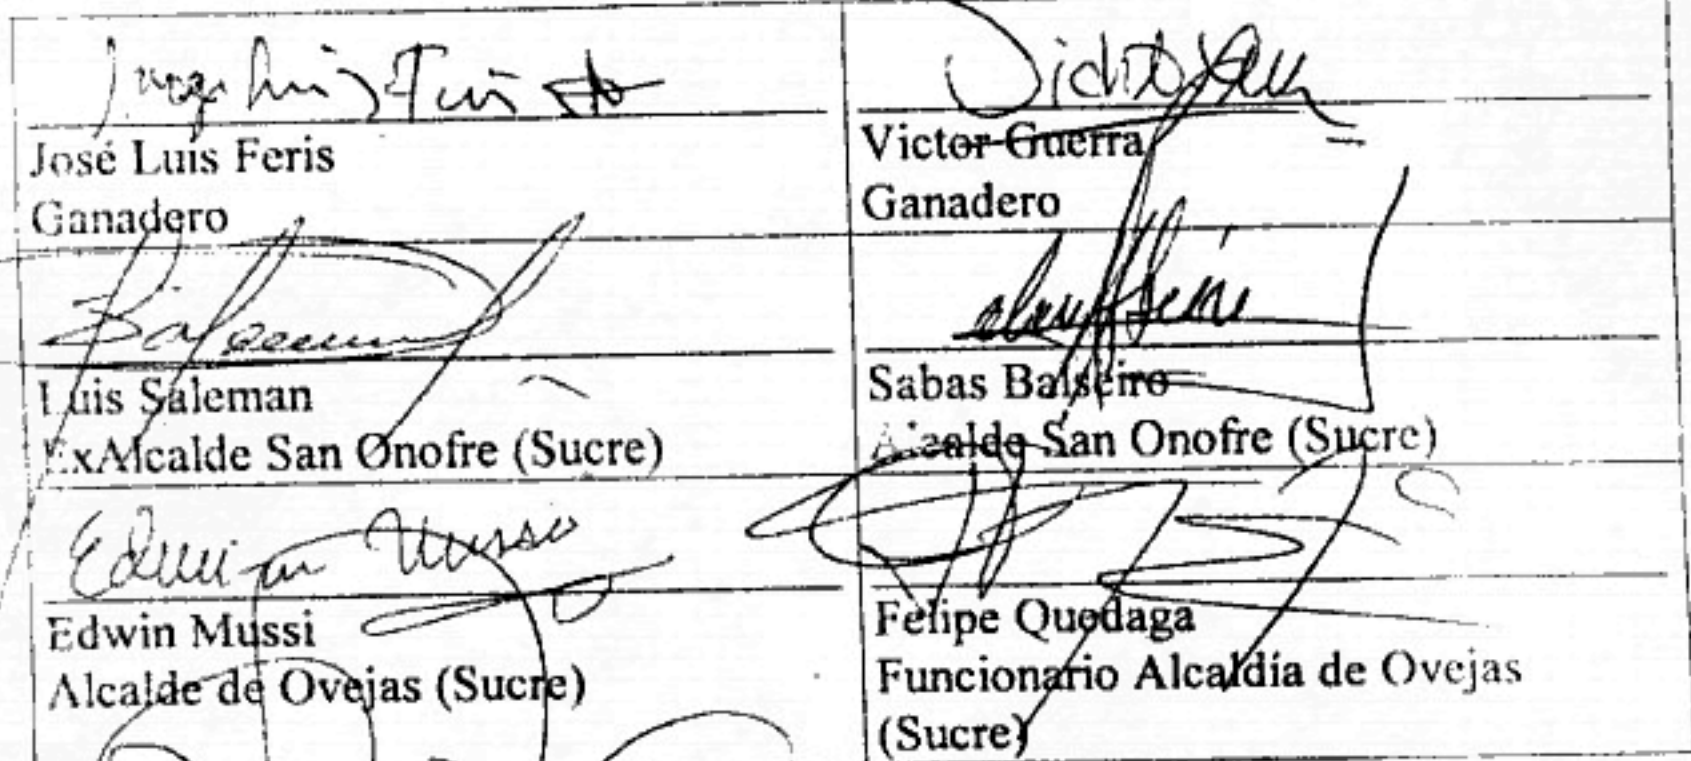 José Luis Feris
Ganadero
Victor Guerra
Ganadero
Luis Saleman
ExAlcalde San Onofre (Sucre)
Sabas Balseiro
Alcalde San Onofre (Sucre)
Edwin Mussi
Edwin Mussi
Alcalde de Ovejas (Sucre)
Felipe Quedaga
Funcionario Alcaldía de Ovejas
(Sucre)